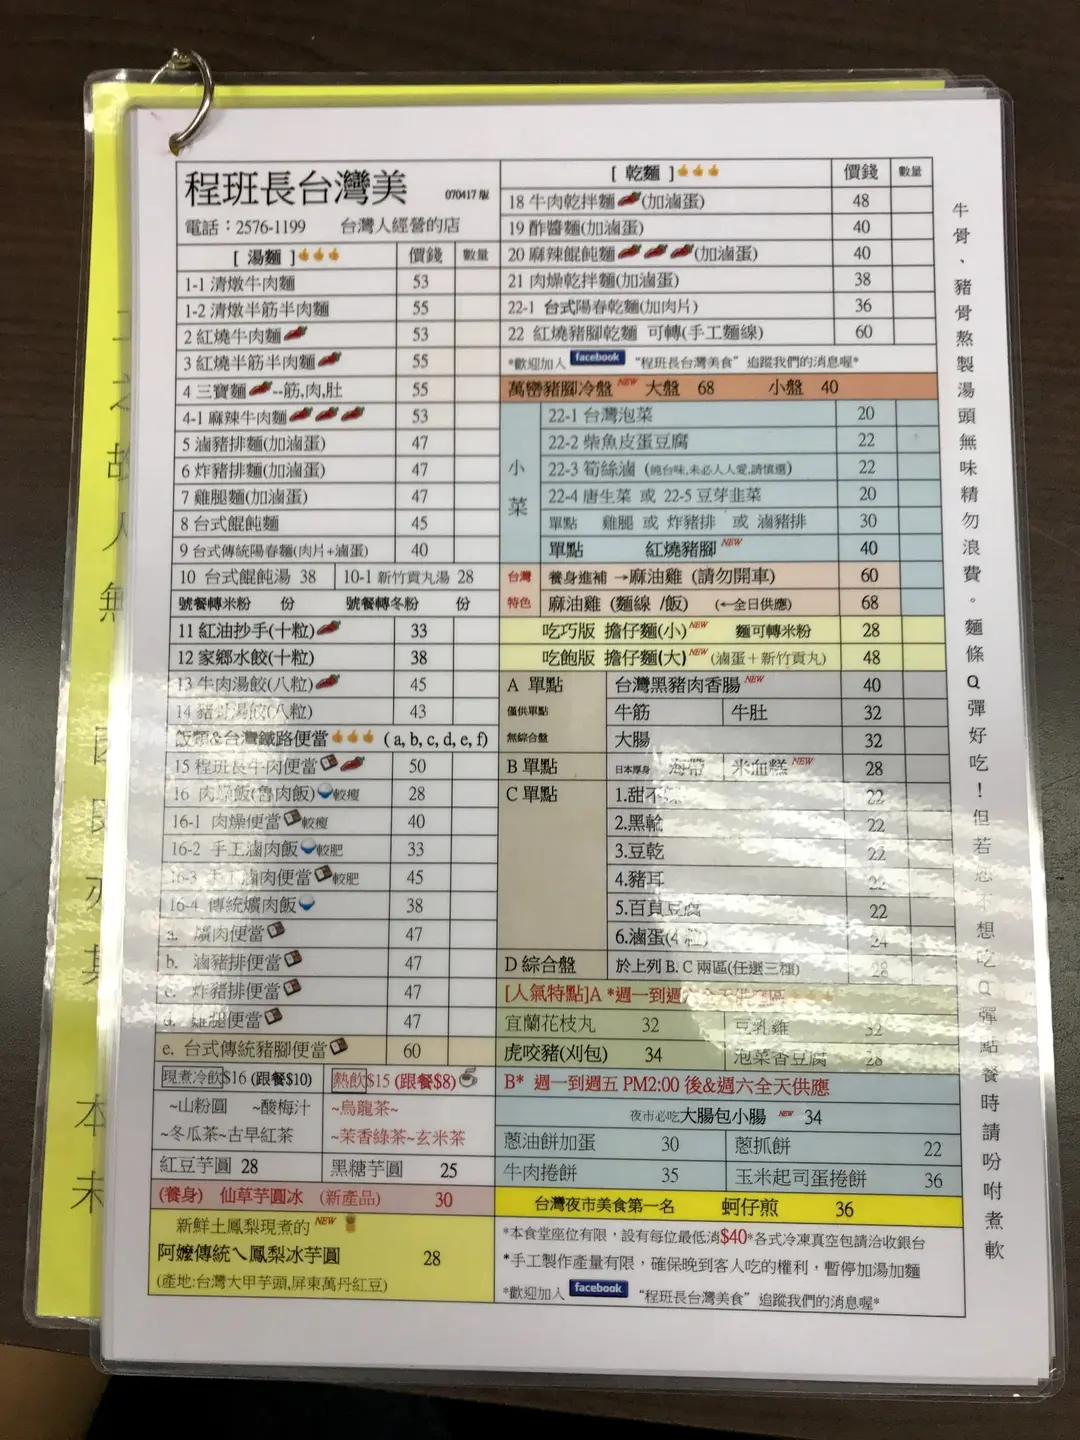 程班長台灣美 070417 版
電話：2576-1199 台灣人經營的店
[ 湯麵 ] 價錢 數量
1-1 清燉牛肉麵 53
1-2 清燉半筋半肉麵 55
2 紅燒牛肉麵 53
3 紅燒半筋半肉麵 55
4 三寶麵 --筋,肉,肚 55
4-1 麻辣牛肉麵 53
5 滷豬排麵(加滷蛋) 47
6 炸豬排麵(加滷蛋) 47
7 雞腿麵(加滷蛋) 47
8 台式餛飩麵 45
9 台式傳統陽春麵(肉片+滷蛋) 40
10 台式餛飩湯 38 10-1 新竹貢丸湯 28
號餐轉米粉 份 號餐轉冬粉 份
11 紅油抄手(十粒) 33
12 家鄉水餃(十粒) 38
13 牛肉湯餃(八粒) 45
14 豬骨湯餃(八粒) 43
飯類&台灣鐵路便當 ( a, b, c, d, e, f)
15 程班長牛肉便當 50
16 肉燥飯(魯肉飯) 較瘦 28
16-1 肉燥便當 較瘦 40
16-2 手工滷肉飯 較肥 33
16-3 手工滷肉便當 較肥 45
16-4 傳統爌肉飯 38
a. 爌肉便當 47
b. 滷豬排便當 47
c. 炸豬排便當 47
d. 雞腿便當 47
e. 台式傳統豬腳便當 60
現煮冷飲$16 (跟餐$10) 熱飲$15 (跟餐$8)
~山粉圓 ~酸梅汁 ~烏龍茶~
~冬瓜茶~古早紅茶 ~茉香綠茶~玄米茶
紅豆芋圓 28 黑糖芋圓 25
(養身) 仙草芋圓冰 (新產品) 30
新鮮土鳳梨現煮的 NEW
阿嬤傳統ㄟ鳳梨冰芋圓 28
(產地:台灣大甲芋頭,屏東萬丹紅豆)
[ 乾麵 ] 價錢 數量
18 牛肉乾拌麵 (加滷蛋) 48
19 酢醬麵(加滷蛋) 40
20 麻辣餛飩麵 (加滷蛋) 40
21 肉燥乾拌麵(加滷蛋) 38
22-1 台式陽春乾麵(加肉片) 36
22 紅燒豬腳乾麵 可轉(手工麵線) 60
*歡迎加入 facebook “程班長台灣美食” 追蹤我們的消息喔*
萬巒豬腳冷盤 NEW 大盤 68 小盤 40
小菜
22-1 台灣泡菜 20
22-2 柴魚皮蛋豆腐 22
22-3 筍絲滷 (純台味,未必人人愛,請慎選) 22
22-4 唐生菜 或 22-5 豆芽韭菜 20
單點 雞腿 或 炸豬排 或 滷豬排 30
單點 紅燒豬腳 NEW 40
台灣 養身進補 →麻油雞 (請勿開車) 60
特色 麻油雞 (麵線 /飯) (←全日供應) 68
吃巧版 擔仔麵(小) NEW 麵可轉米粉 28
吃飽版 擔仔麵(大) NEW (滷蛋＋新竹貢丸) 48
A 單點 台灣黑豬肉香腸 NEW 40
僅供單點 牛筋 牛肚 32
無綜合盤 大腸 32
B 單點 日本厚身 海帶 米血糕 NEW 28
C 單點 1.甜不 22
2.黑輪 22
3.豆乾 22
4.豬耳 22
5.百頁豆腐 22
6.滷蛋(4 粒) 24
D 綜合盤 於上列 B. C 兩區(任選三種) 28
[人氣特點]A *週一到週六全天供應
宜蘭花枝丸 32 豆乳雞 32
虎咬豬(刈包) 34 泡菜香豆腐 28
B* 週一到週五 PM2:00 後&週六全天供應
夜市必吃大腸包小腸 NEW 34
蔥油餅加蛋 30 蔥抓餅 22
牛肉捲餅 35 玉米起司蛋捲餅 36
台灣夜市美食第一名 蚵仔煎 36
*本食堂座位有限，設有每位最低消$40*各式冷凍真空包請洽收銀台
*手工製作產量有限，確保晚到客人吃的權利，暫停加湯加麵
*歡迎加入 facebook “程班長台灣美食” 追蹤我們的消息喔*
牛骨、豬骨熬製湯頭無味精勿浪費。麵條Q彈好吃！但若您不想吃Q彈點餐時請吩咐煮軟
故人
本
未